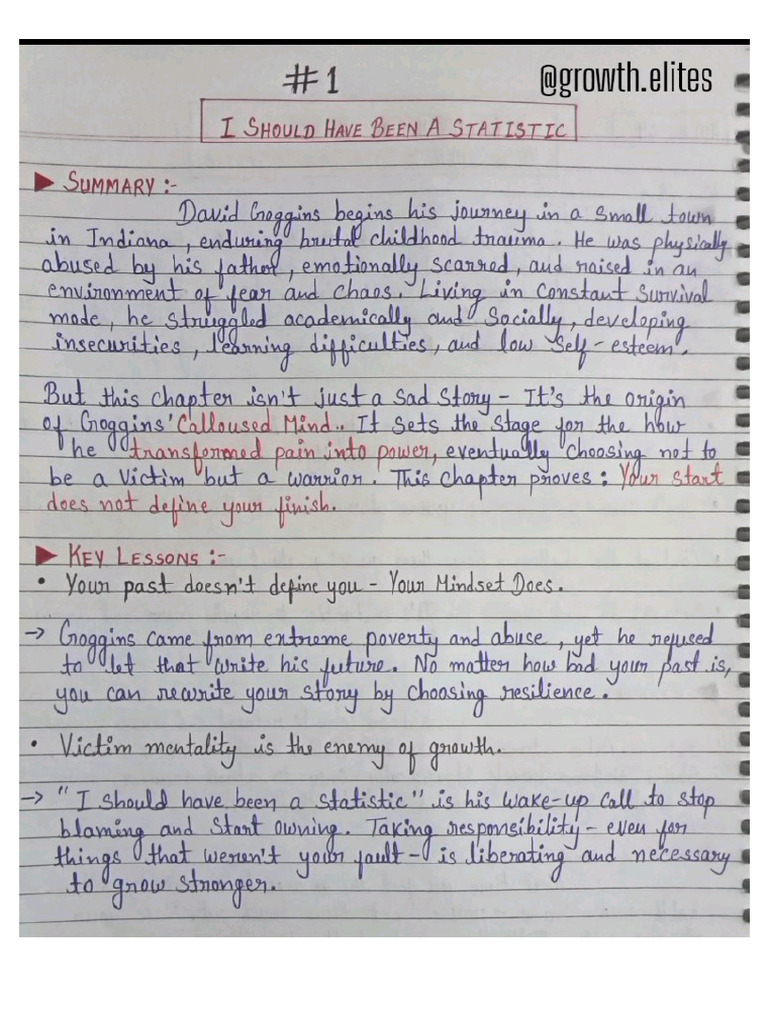 #1
@growth.elites
I SHOULD HAVE BEEN A STATISTIC
SUMMARY :-
David Goggins begins his journey in a small town
in Indiana, enduring brutal childhood trauma. He was physically
abused by his father, emotionally scarred, and raised in an
environment of fear and chaos. Living in constant survival
mode, he struggled academically and socially, developing
insecurities, learning difficulties, and low self-esteem.
But this chapter isn't just a sad story - It's the origin
of Goggins' Calloused Mind. It sets the stage for the how
he transformed pain into power, eventually choosing not to
be a victim but a warrior. This chapter proves : Your start
does not define your finish.
KEY LESSONS :-
• Your past doesn't define you - Your Mindset Does.
→ Goggins came from extreme poverty and abuse, yet he refused
to let that write his future. No matter how bad your past is,
you can rewrite your story by choosing resilience.
• Victim mentality is the enemy of growth.
→ "I should have been a statistic" is his wake-up call to stop
blaming and start owning. Taking responsibility - even for
things that weren't your fault - is liberating and necessary
to grow stronger.